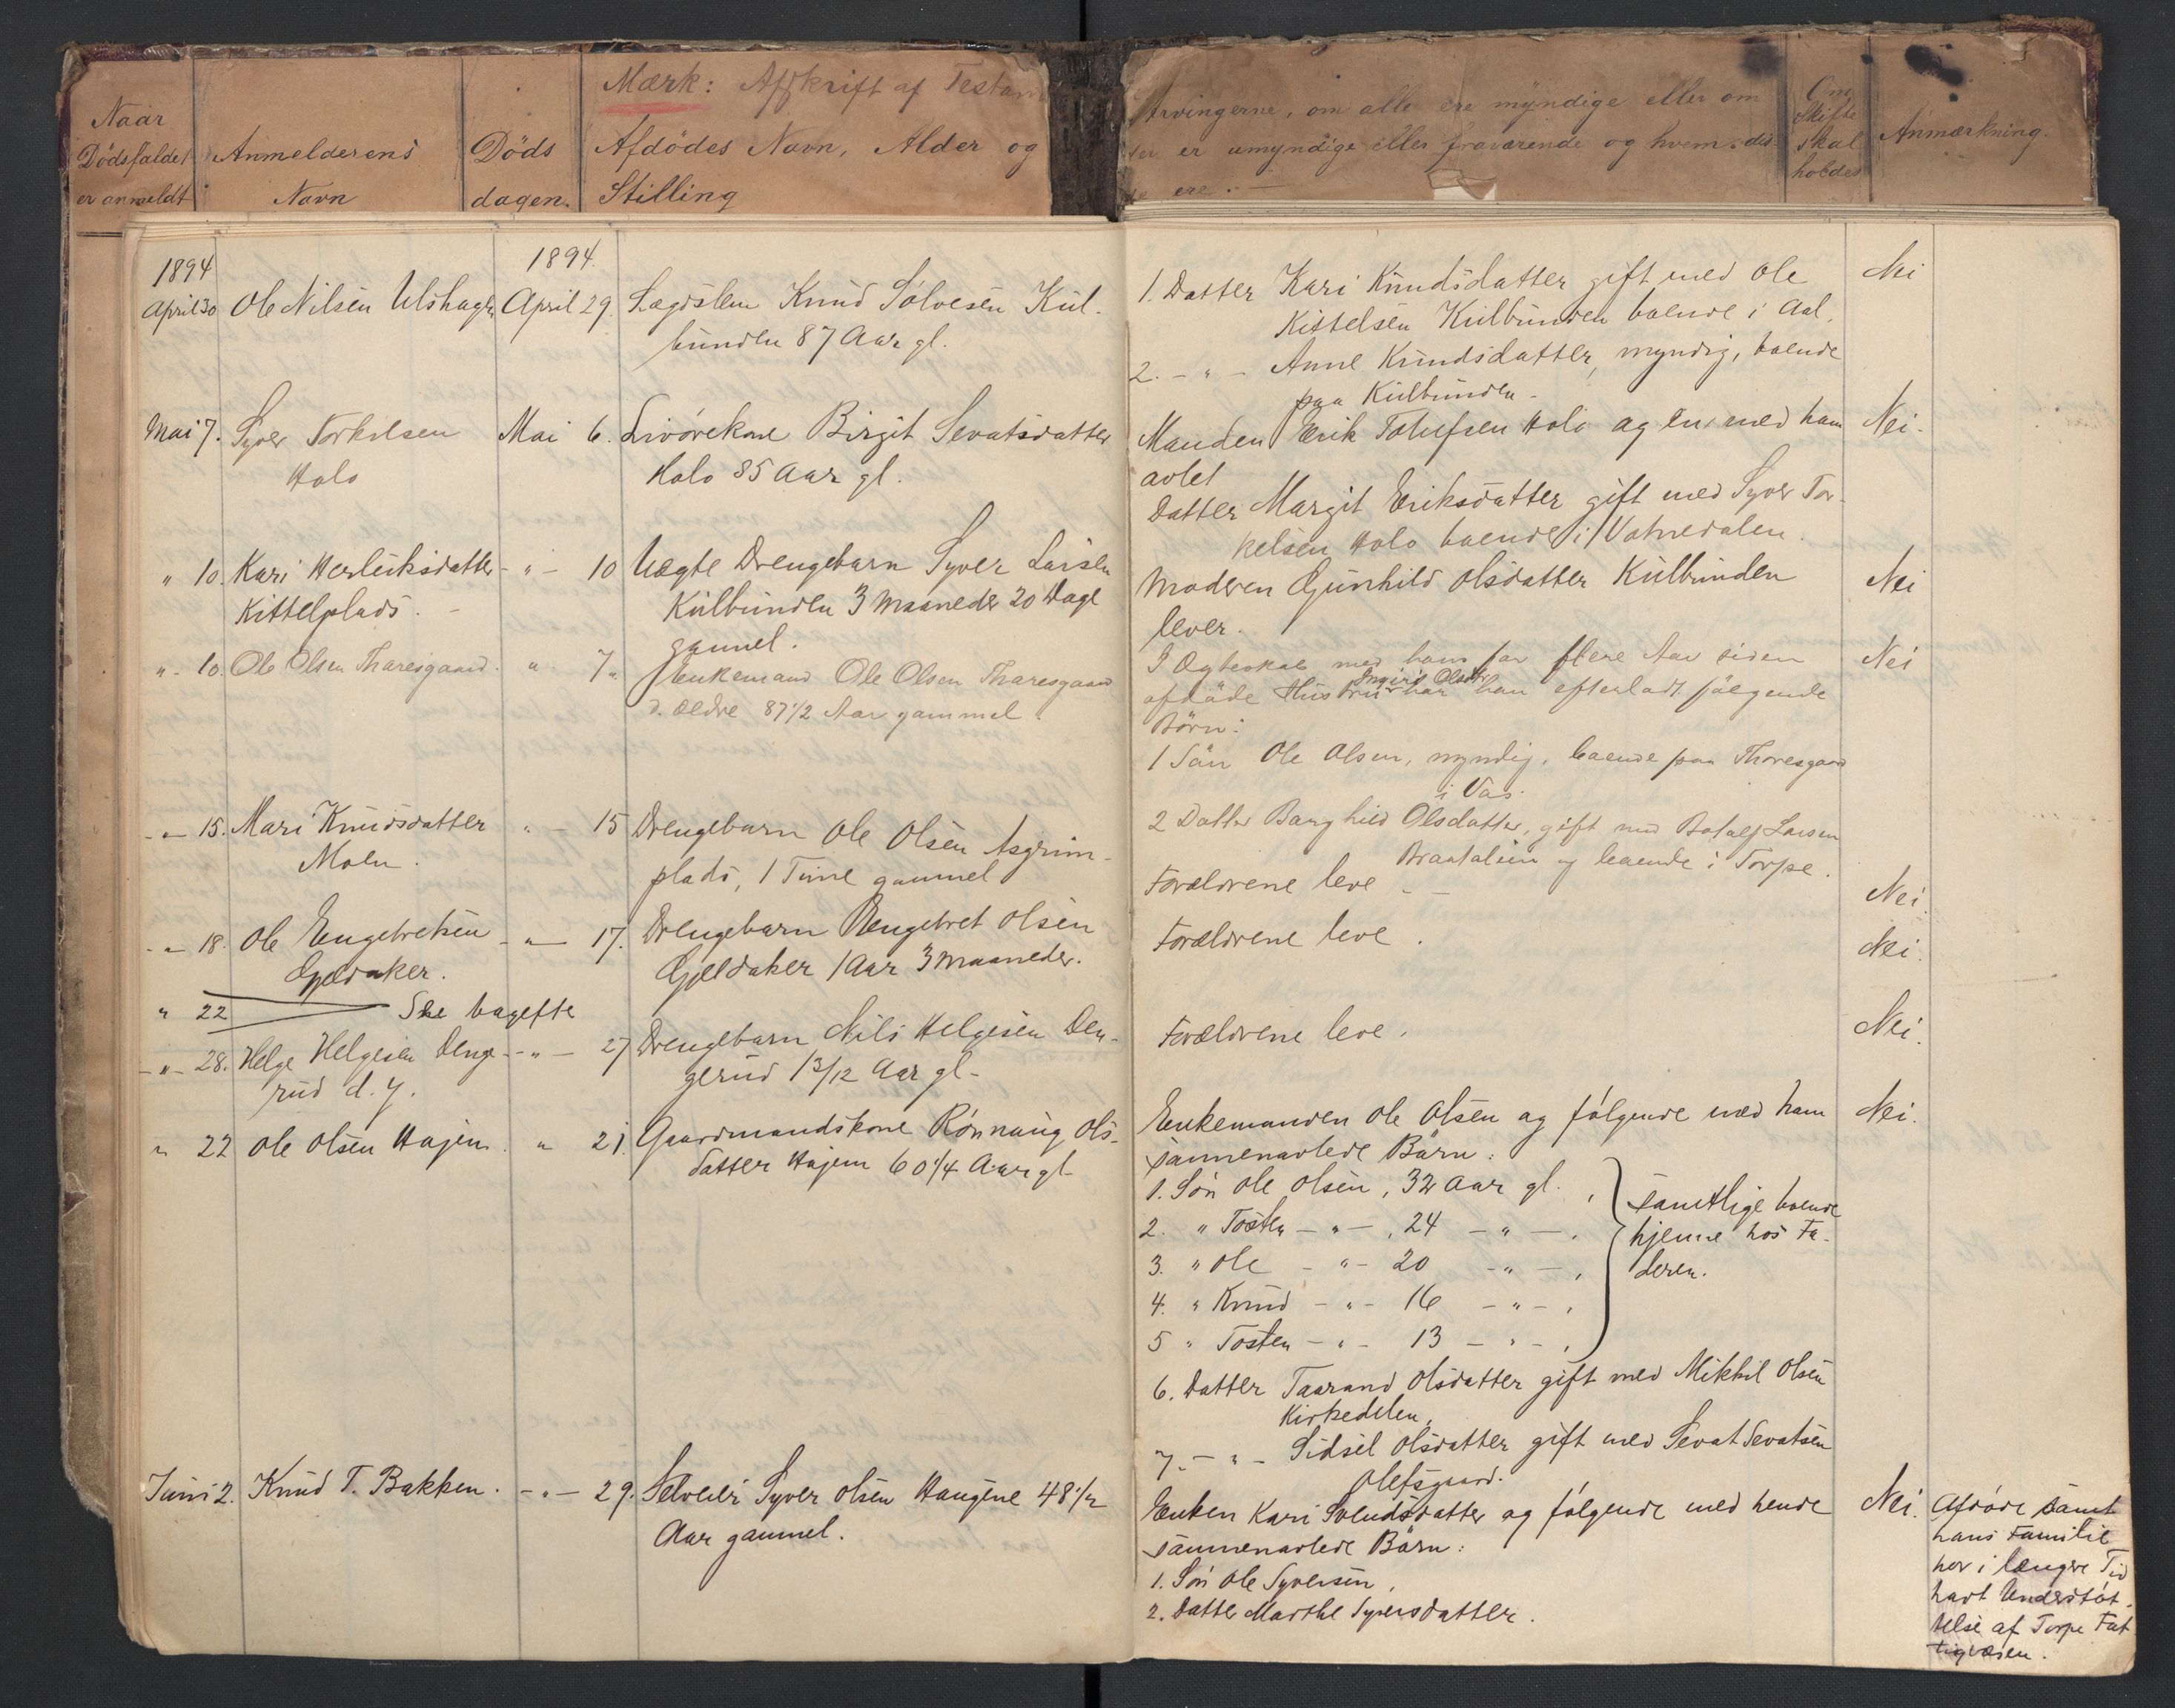 Naar
Dödsfaldet
er anmeldt
Anmelderens
Navn
Döds
dagen.
Mærk: Afskrift af Testam
Afdödes Navn, Alder og
Stilling
Arvingerne, om alle ere myndige eller om
er umyndige eller fraværende og hvem dis-
se ere.
Om
Skifte
skal
holdes
Anmærkning.
1894
1894.
April 30 Ole Nilsen Ulshagen April 29. Lægdslem Knud Sølvesen Kul-
bunden 87 Aar gl.
1. Datter Kari Knudsdatter gift med Ole
Kittelsen Kulbunden boende i Aal.
2. - " - Anne Knudsdatter, myndig, boende
paa Kulbunden.
Nei
Mai 7. Syver Torkelsen
Holo
Mai 6. Livörekone Birgit Sevatsdatter
Holo 85 Aar gl.
Manden Erik Tolufsen Holo og en med ham
avlet
Datter Margit Eriksdatter gift med Syver Tor-
kelsen Holo boende i Vatnedalen.
Nei.
" 10. Kari Herleiksdatter
Kittelplads.
- " - 10 Uægte Drengebarn Syver Larsen
Kulbunden 3 Maaneder 20 Dage
gammel.
Moderen Gunhild Olsdatter Kulbunden
lever.
Nei
" 10. Ole Olsen Tharesgaard. " 7. Enkemand Ole Olsen Tharesgaard
d. ældre 87 1/2 Aar gammel.
I Ægteskab med hans for flere Aar siden
afdöde Hustru Ingrid Olsdtr har han efterladt fölgende
Börn:
1 Sön Ole Olsen, myndig, boende paa Thoresgaard
i Vas.
2 Datter Barghild Olsdatter, gift med Botolf Larsen
Braatalien og boende i Torpe.
Nei
- " - 15. Mari Knudsdatter
Moen.
" - 15 Drengebarn Ole Olsen Asgrim-
plads, 1 Time gammel
Forældrene leve -
Nei.
- " 18. Ole Engebretsen
Gjeldaker.
- " - 17. Drengebarn Engebret Olsen
Gjeldaker 1 Aar 3 Maaneder.
Forældrene leve.
Nei.
" 22 See bagefte
- " - 28. Helge Helgesen Denge-
rud d. y.
- " - 27 Drengebarn Nils Helgesen Den-
gerud 1 3/12 Aar gl.
Forældrene leve.
Nei.
" 22 Ole Olsen Hajem. " 21. Gaardmandskone Rönnaug Ols-
datter Hajem 60 1/4 Aar gl
Enkemanden Ole Olsen og fölgende med ham
sammenavlede Börn:
1. Sön Ole Olsen, 32 Aar gl.,
2. " Tosten - " - , 24 - " - ,
3. " Ole - " - 20 - " - ,
4. " Knud - " - 16 - " - ,
5 " Tosten - " - 13 - " - ,
samtlige boende
hjemme hos Fa-
deren.
6. Datter Taarand Olsdatter gift med Mikkel Olsen
Kirkedelen,
7. - " - Sidsel Olsdatter gift med Sevat Sevatsen
Olefsgaard.
Nei.
Juni 2. Knud T. Bakken. - " - 29. Selveier Syver Olsen Haugene 48 1/2
Aar gammel.
Enken Kari Svendsdatter og fölgende med hende
sammenavlede Börn:
1. Sön Ole Syversen,
2. Datter Marthe Syversdatter.
Nei.
Afdöde samt
hans Familie
har i længre Tid
havt Understöt-
telse af Torpe Fat-
tigvæsen.